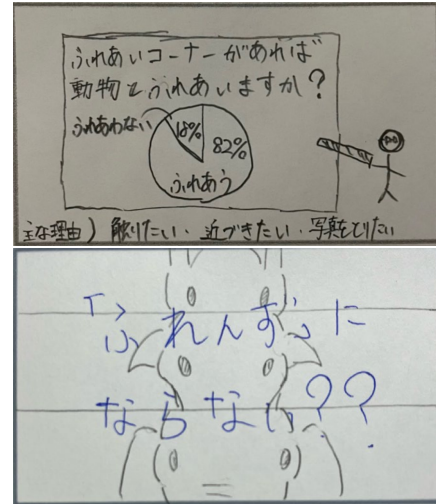 ふれあいコーナーがあれば
動物とふれあいますか?
ふれあわない
18%
82%
ふれあう
主な理由) 触りたい・近づきたい・写真をとりたい
「ふれんず」に
ならない??